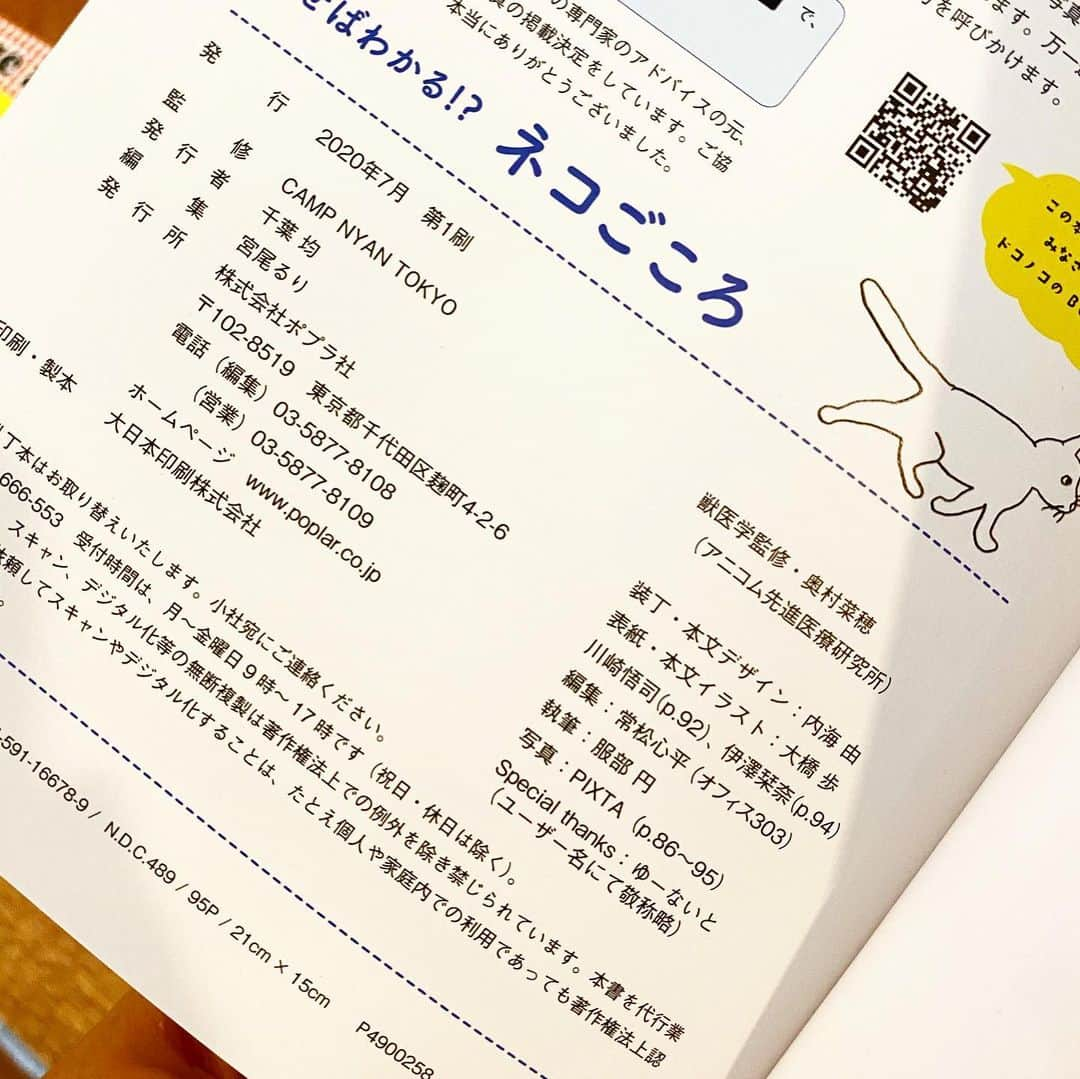 の専門家のアドバイスの元、
真の掲載決定をしています。ご協
本当にありがとうございました。
で、
写真
ます。万一
を呼びかけます。
せばわかる!? ネコごころ
この本
みなさ
ドコノコのBo
発行 2020年7月 第1刷
監修 CAMP NYAN TOKYO
発行者 千葉 均
編集 宮尾るり
発行所 株式会社ポプラ社
〒102-8519 東京都千代田区麹町4-2-6
電話 (編集) 03-5877-8108
(営業) 03-5877-8109
ホームページ www.poplar.co.jp
印刷・製本 大日本印刷株式会社
獣医学監修・奥村菜穂
(アニコム先進医療研究所)
装丁・本文デザイン:内海 由
表紙・本文イラスト:大橋 歩
川崎悟司(p.92)、伊澤栞奈(p.94)
編集:常松心平 (オフィス303)
執筆:服部 円
写真:PIXTA (p.86〜95)
Special thanks:ゆーないと
(ユーザー名にて敬称略)
丁本はお取り替えいたします。小社宛にご連絡ください。
-666-553 受付時間は、月〜金曜日9時〜17時です (祝日・休日は除く)。
スキャン、デジタル化等の無断複製は著作権法上での例外を除き禁じられています。本書を代行業
依頼してスキャンやデジタル化することは、たとえ個人や家庭内での利用であっても著作権法上認
。
-591-16678-9 / N.D.C.489 / 95P / 21cm × 15cm
P4900258